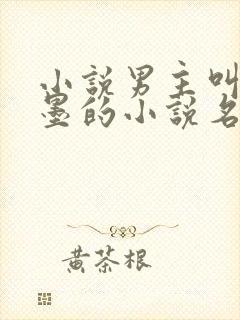 小說男主叫
墨的小說名
黄茶根